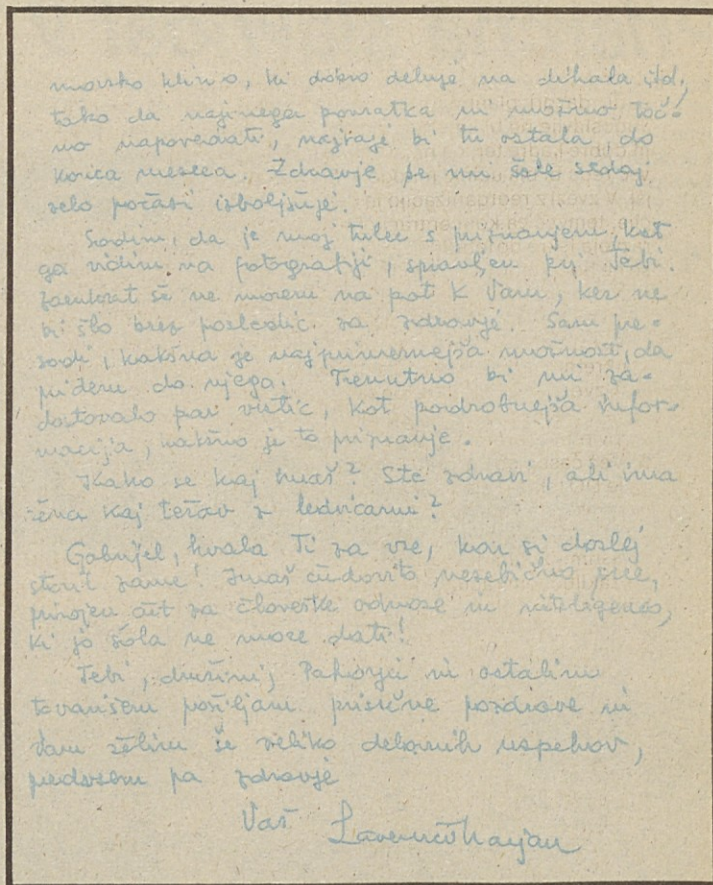 morsko klimo, ki dobro deluje na dihala itd,
tako da najinega povratka ni možno toč-
no napovedati, najraje bi tu ostala do
konca meseca. Zdravje se mi šele sedaj
zelo počasi izboljšuje.
Sodim, da je moj tulec s priznanjem, kot
ga vidim na fotografiji, spravljen pri Tebi.
Zaenkrat še ne morem na pot k Vam, ker ne
bi šlo brez posledic za zdravje. Sam pre-
sodi, kakšna je najprimernejša možnost, da
pridem do njega. Trenutno bi mi za-
dostovalo par vrstic, kot podrobnejša infor-
macija, kakšno je to priznanje.
Kako se kaj imaš? Ste zdravi, ali ima
žena kaj težav z ledvicami?
Gabrijel, hvala Ti za vse, kar si doslej
storil zame! Imaš čudovito nesebično srce,
prirojen čut za človeške odnose in inteligenco,
ki jo šola ne more dati!
Tebi, družini, in ostalim
tovarišem pošiljam prisrčne pozdrave in
Vam želim še veliko delovnih uspehov,
predvsem pa zdravje
Vaš